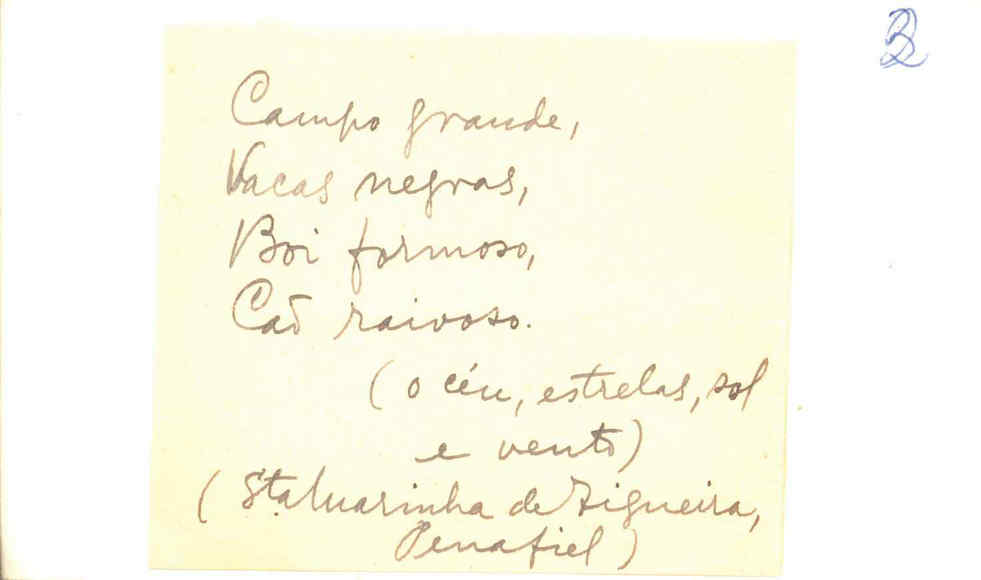 Campo grande,
Vacas negras,
Boi formoso,
Caõ raivoso.
(o céu, estrelas, sol
e vento)
(Sta Marinha de Figueira,
Penafiel)